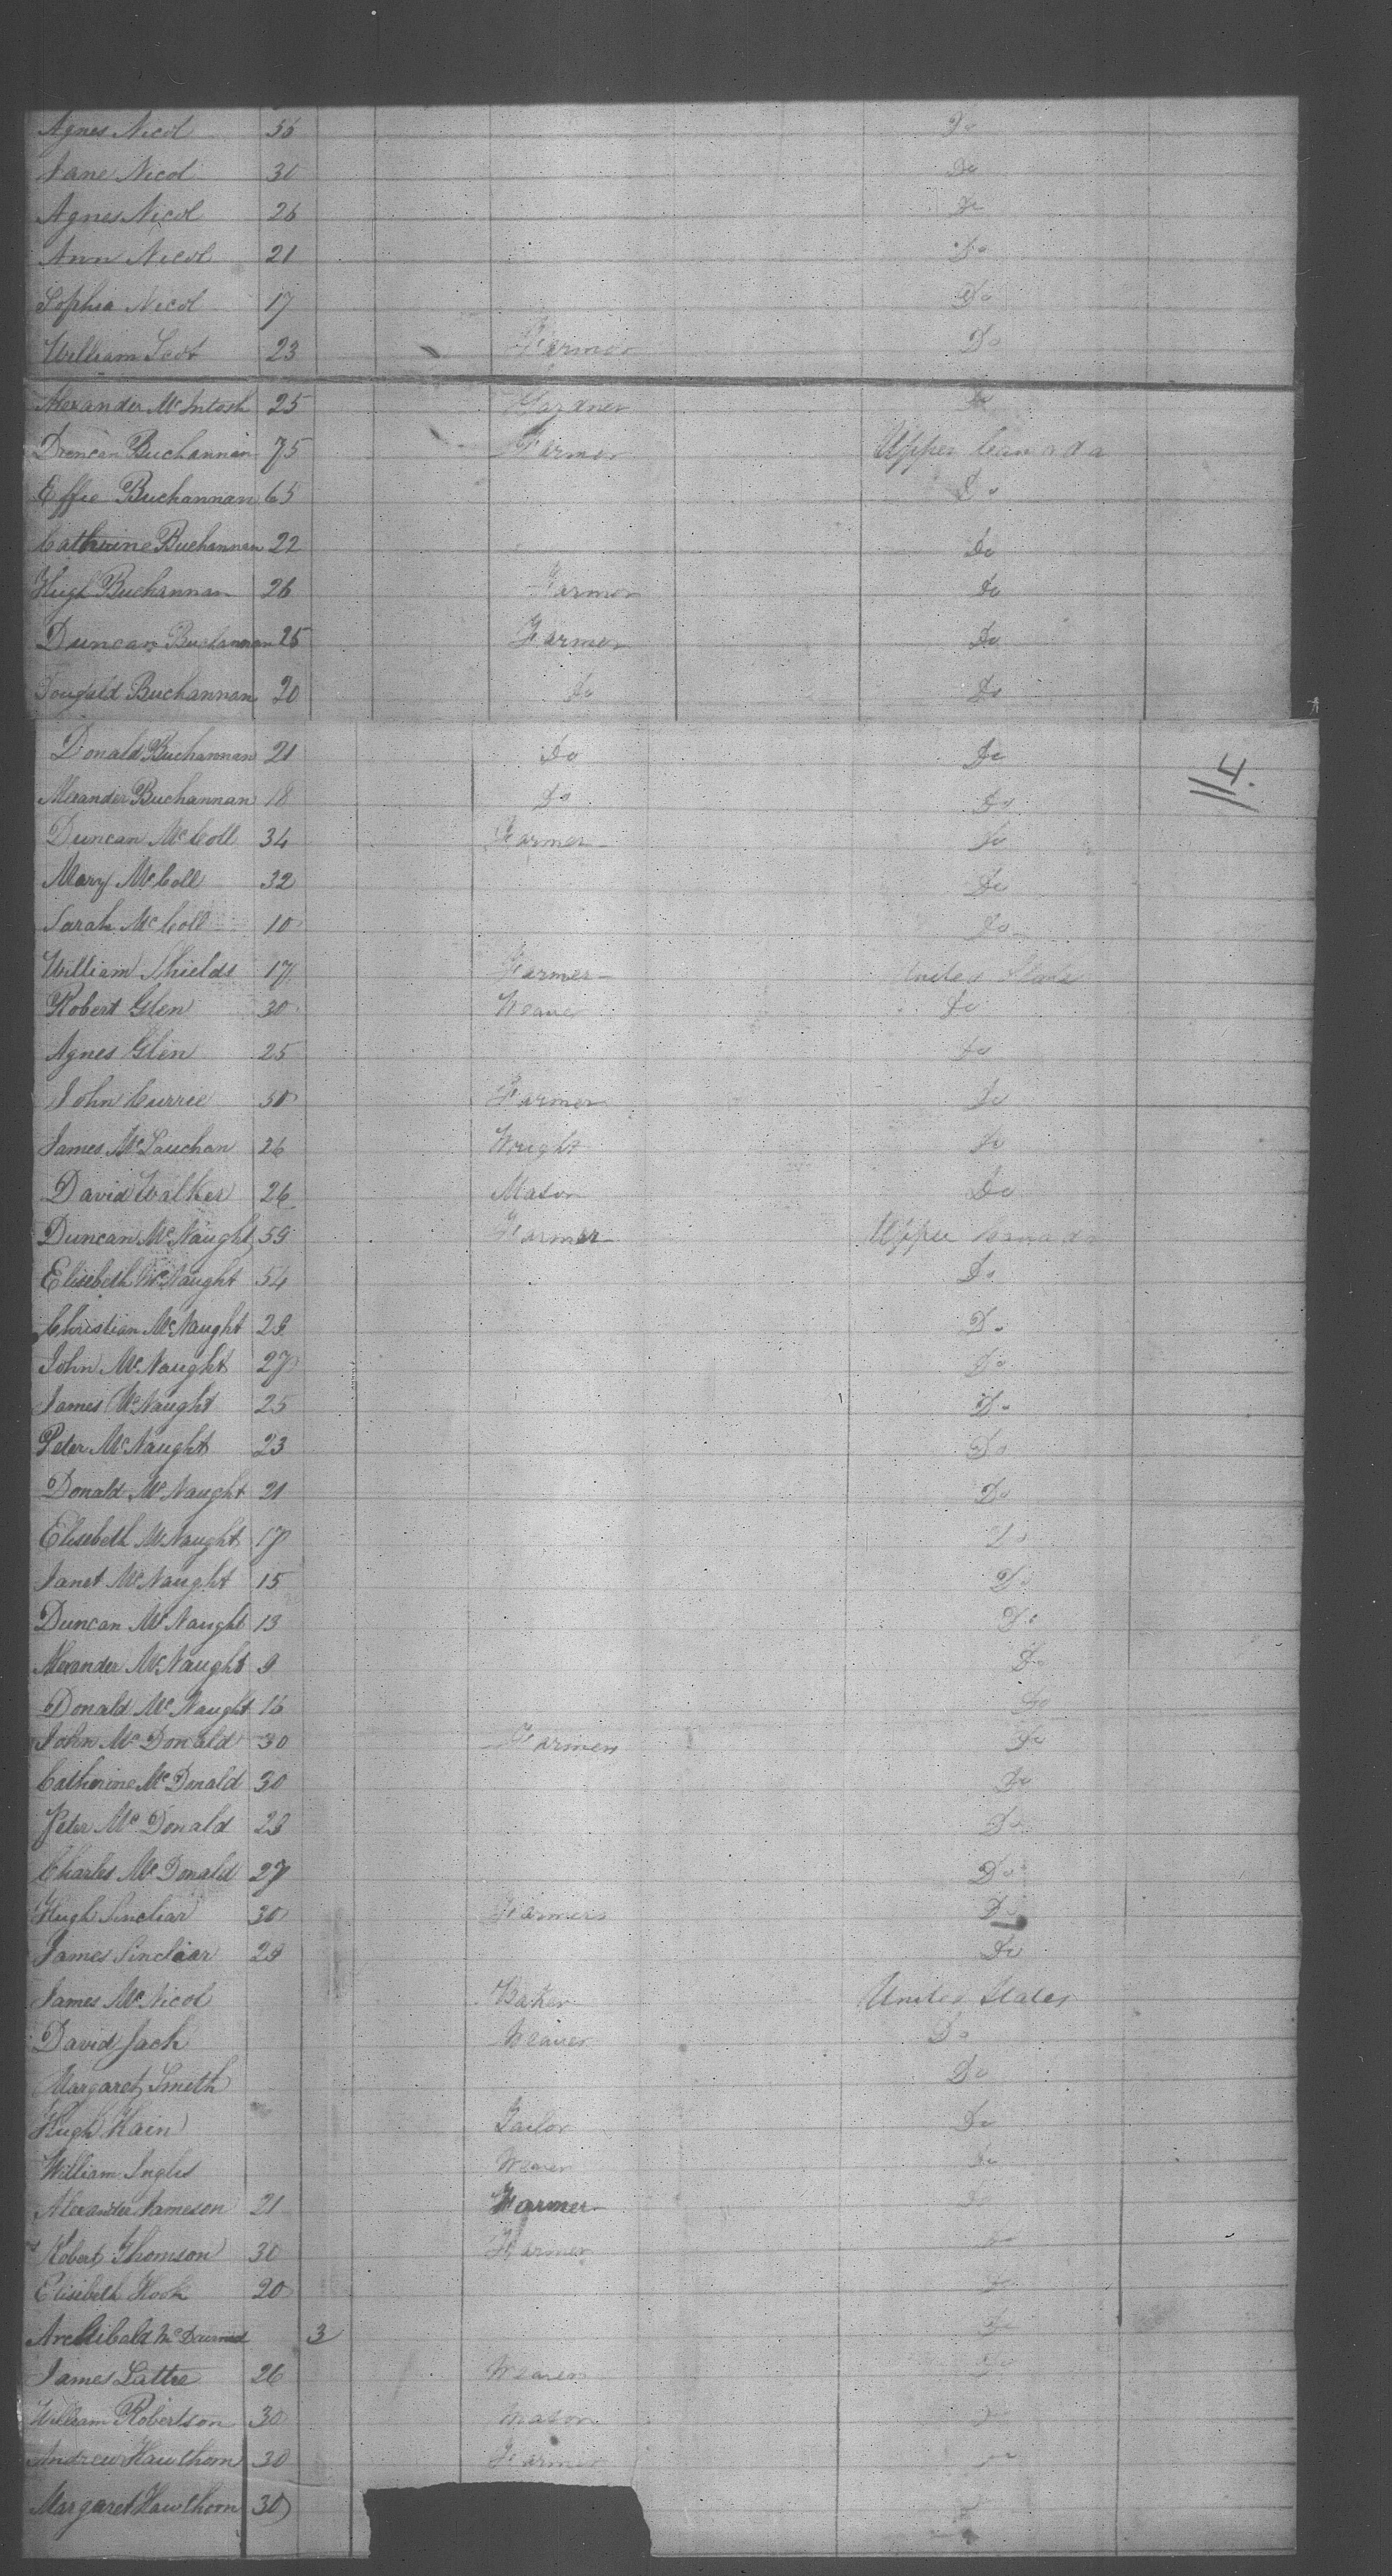 Agnes Nicol 56 Do
Jane Nicol 30 Do
Agnes Nicol 26 Do
Ann Nicol 21 Do
Sophia Nicol 17 Do
William Scot 23 Farmer Do
Alexander McIntosh 25 Gardner Do
Duncan Buchannan 75 Farmer Upper Canada
Effie Buchannan 65 Do
Catherine Buchannan 22 Do
Hugh Buchannan 26 Farmer Do
Duncan Buchannan 25 Farmer Do
Dougald Buchannan 20 Do Do
Donald Buchannan 21 Do Do
114.
Alexander Buchannan 18 Do Do
Duncan McColl 34 Farmer Do
Mary McColl 32 Do
Sarah McColl 10 Do
William Shields 17 Farmer United States
Robert Glen 30 Weaver Do
Agnes Glen 25 Do
John Currie 50 Farmer Do
James McLauchan 26 Wright Do
David Walker 26 Mason Do
Duncan McNaught 59 Farmer Upper Canada
Elisebeth McNaught 54 Do
Christian McNaught 29 Do
John McNaught 27 Do
James McNaught 25 Do
Peter McNaught 23 Do
Donald McNaught 21 Do
Elisebeth McNaught 17 Do
Janet McNaught 15 Do
Duncan McNaught 13 Do
Alexander McNaught 9 Do
Donald McNaught 16 Do
John McDonald 30 Farmers Do
Catherine McDonald 30 Do
Peter McDonald 29 Do
Charles McDonald 27 Do
Hugh Sincliar 30 Farmers Do
James Sinclair 29 Do
James McNicol Baker United States
David Jack Weaver Do
Margaret Smith Do
Hugh Kain Tailor Do
William Inglis Weaver Do
Alexander Jameson 21 Farmer Do
Robert Thomson 30 Farmer Do
Elisibeth Hook 20 Do
Archibald 3 Do
James Lattre 26 Weaver Do
William Robertson 30 Mason Do
Andrew Hawthorn 30 Farmer
Margaret Hawthorn 30